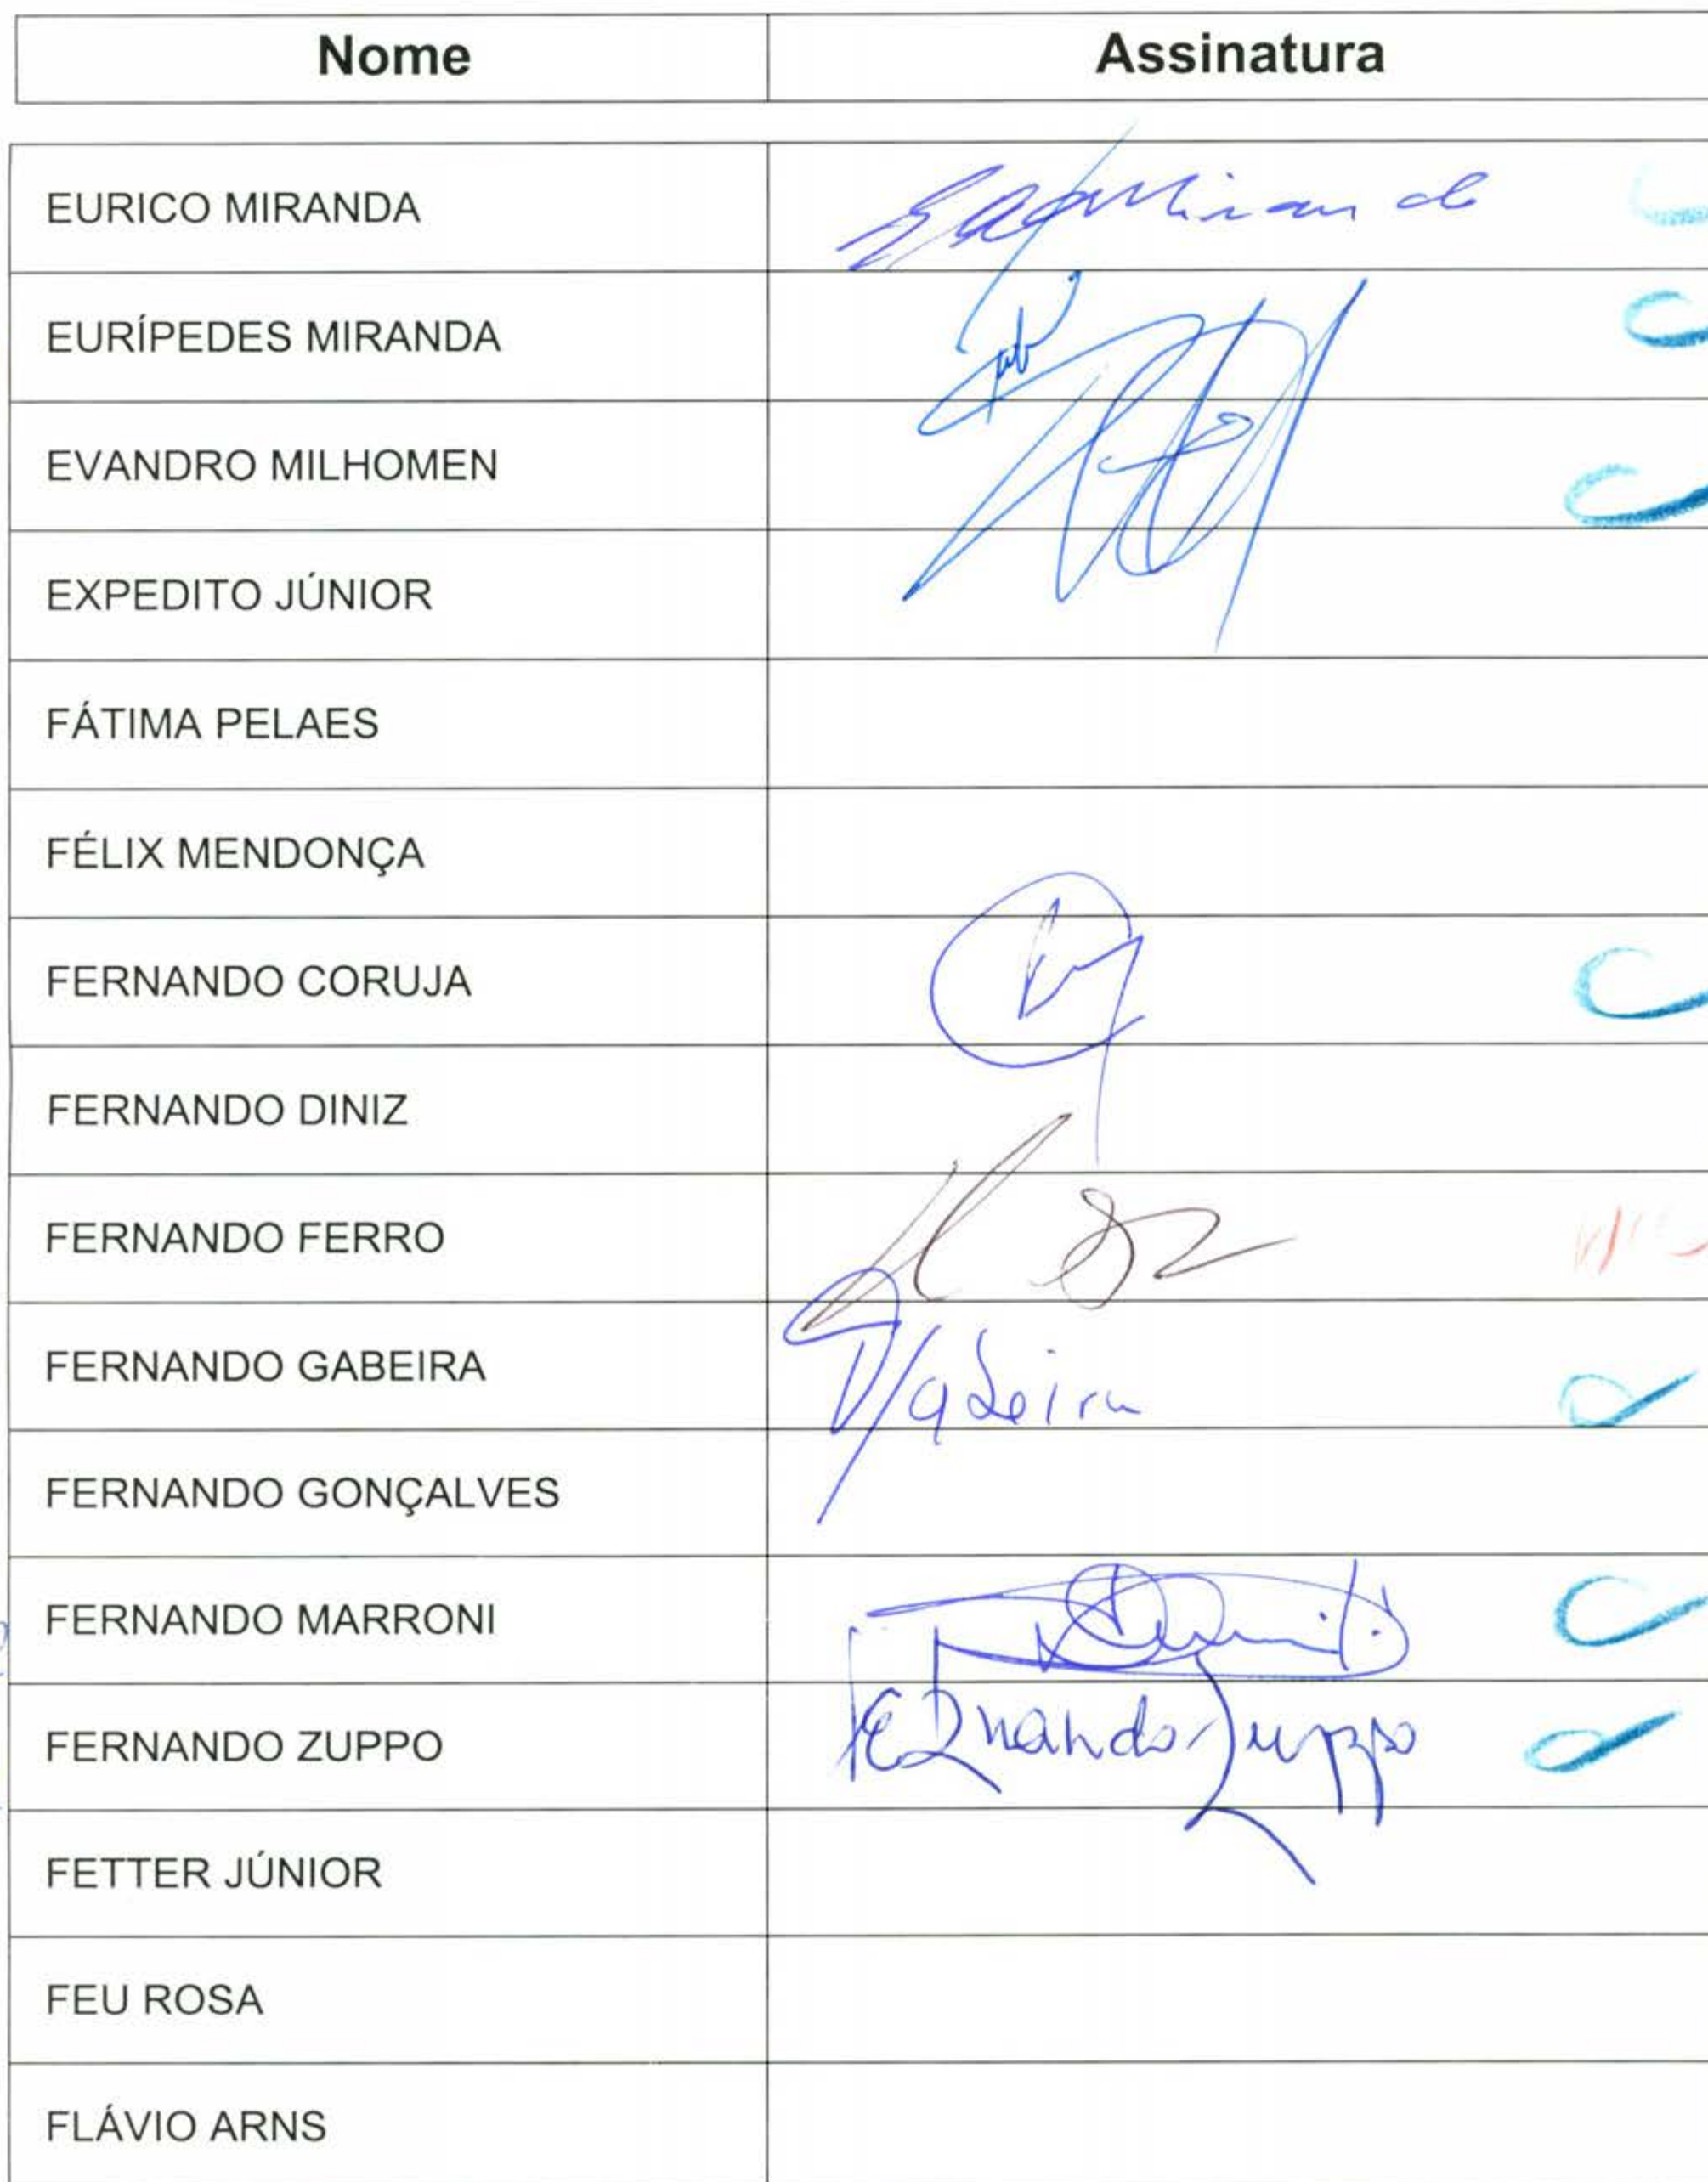 Nome Assinatura
EURICO MIRANDA
EURÍPEDES MIRANDA
EVANDRO MILHOMEN
EXPEDITO JÚNIOR
FÁTIMA PELAES
FÉLIX MENDONÇA
FERNANDO CORUJA
FERNANDO DINIZ
FERNANDO FERRO
FERNANDO GABEIRA
FERNANDO GONÇALVES
FERNANDO MARRONI
FERNANDO ZUPPO Fernando Zuppo
FETTER JÚNIOR
FEU ROSA
FLÁVIO ARNS